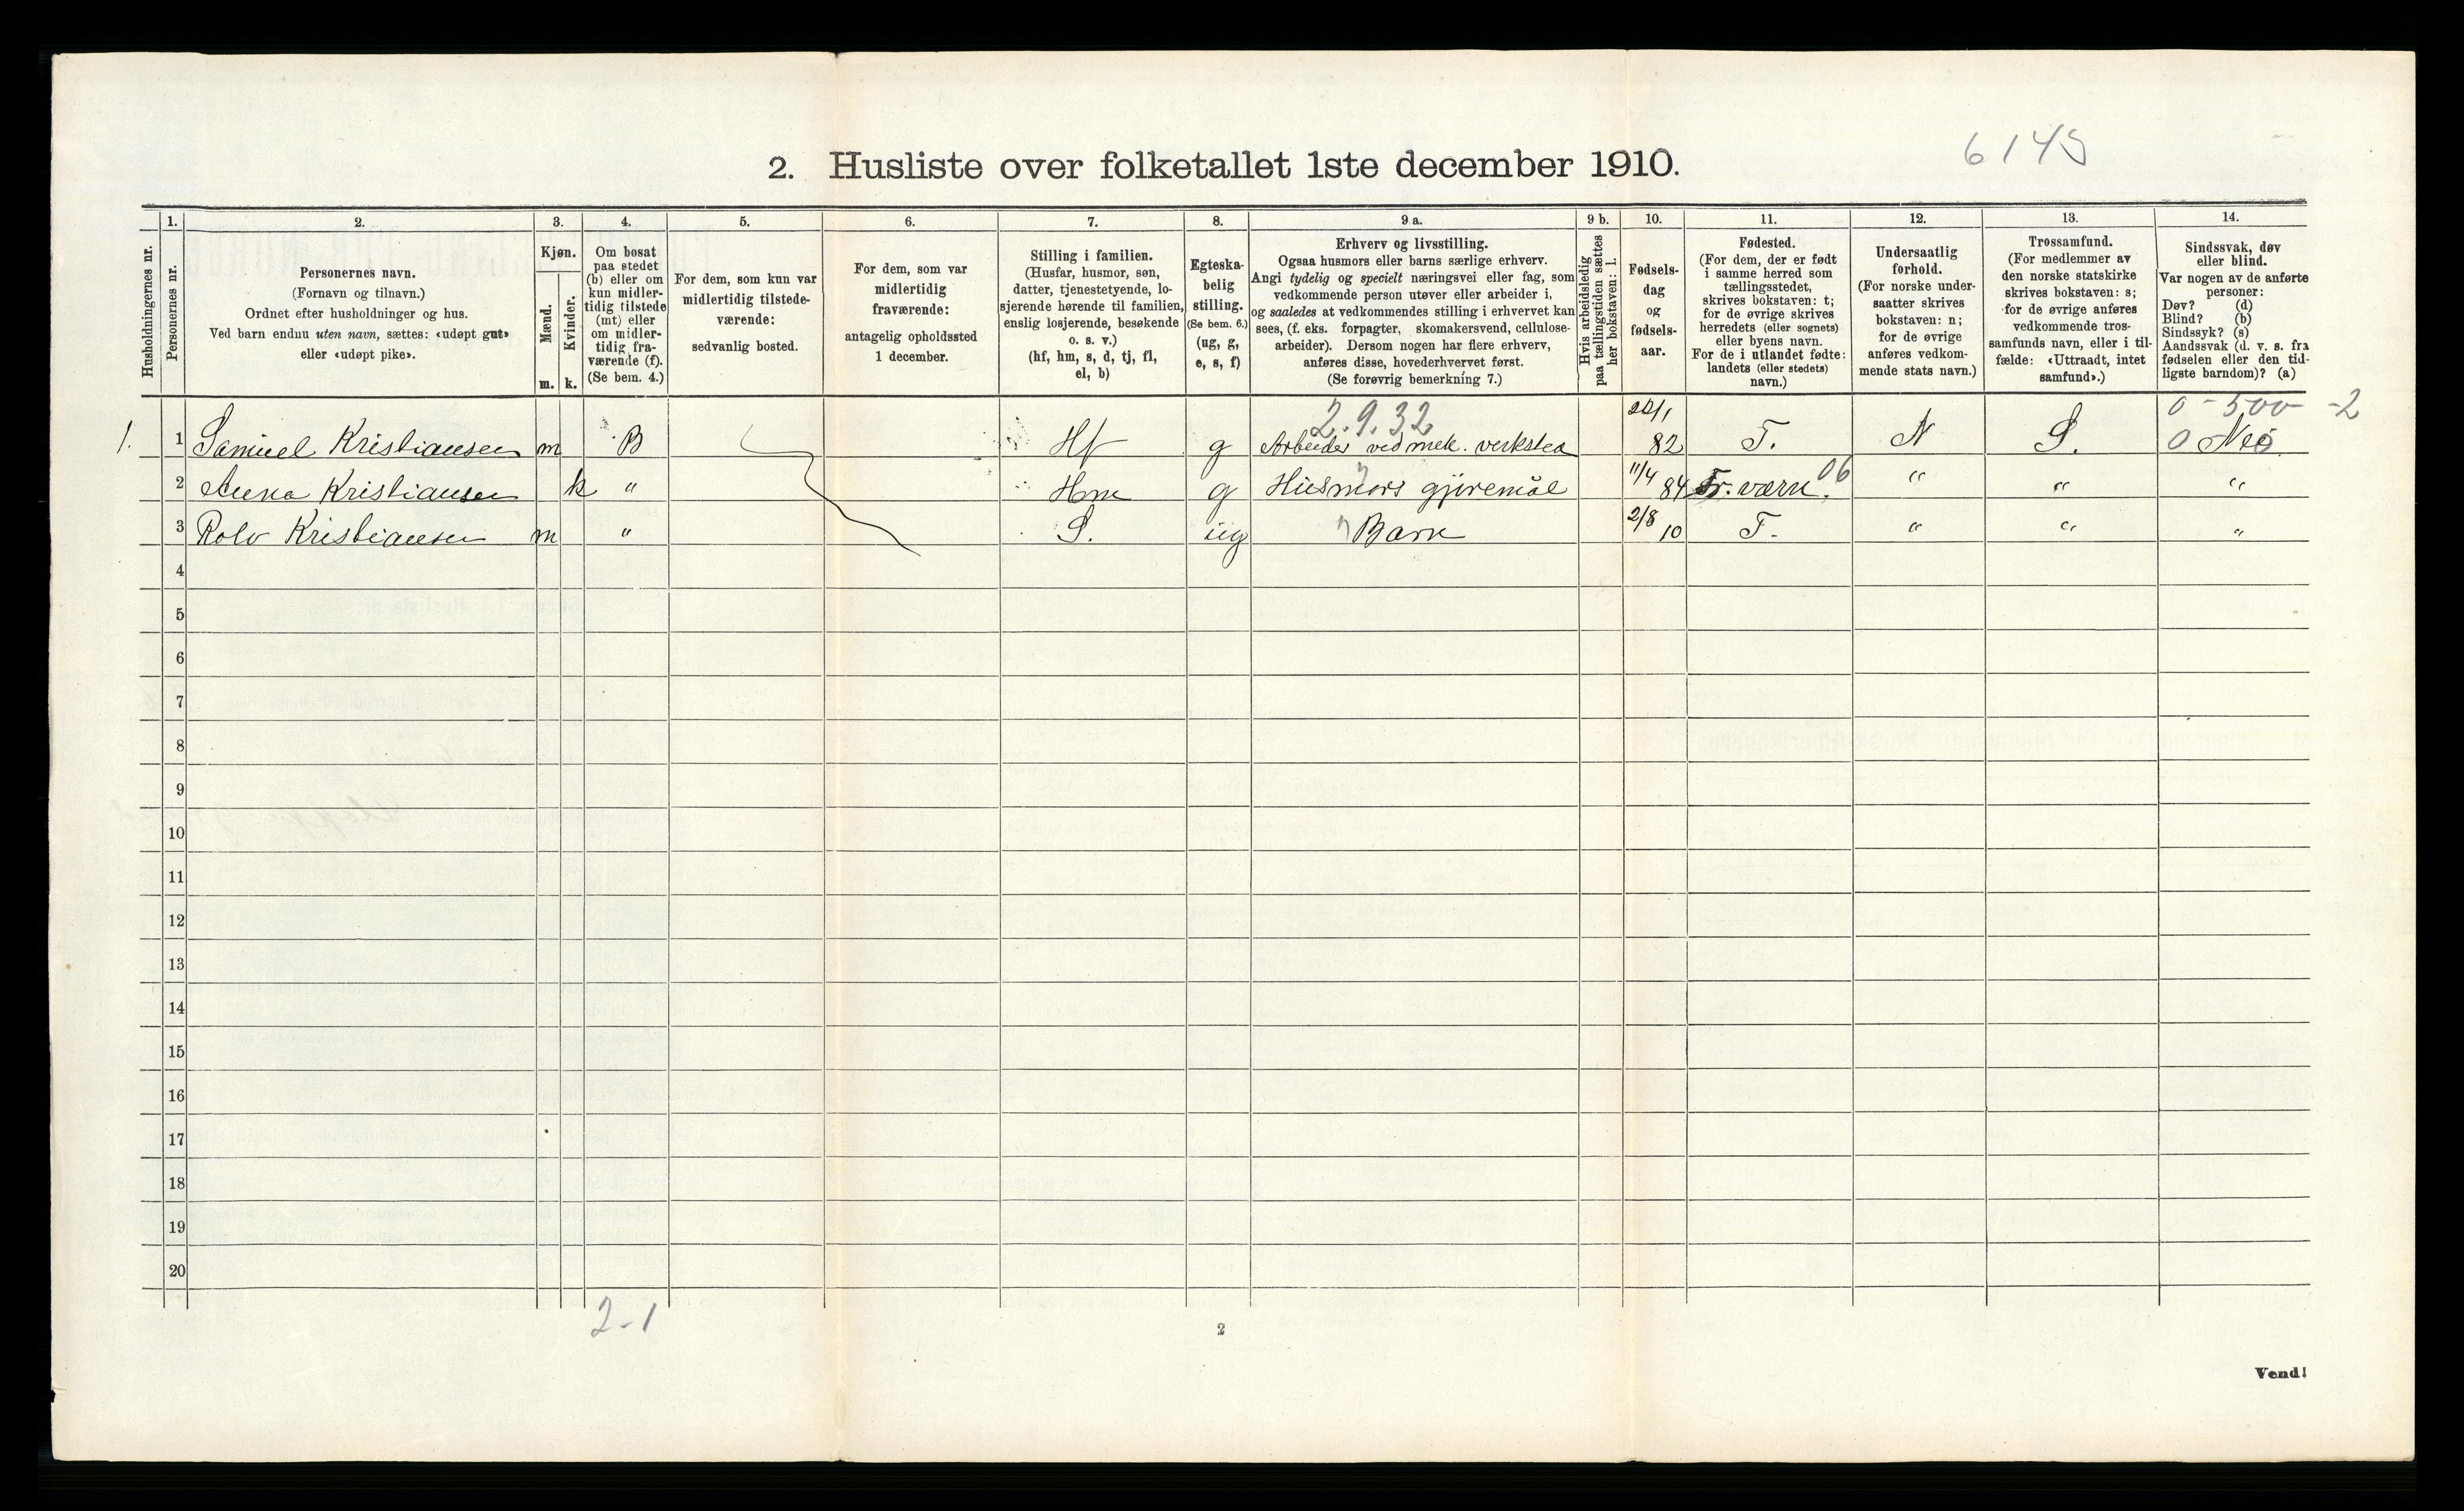 6145
2. Husliste over folketallet 1ste december 1910.
Husholdningernes nr.
1.
Personernes nr.
2.
Personernes navn.
(Fornavn og tilnavn.)
Ordnet efter husholdninger og hus.
Ved barn endnu uten navn, sættes: «udøpt gut»
eller «udøpt pike».
3.
Kjøn.
Mænd.
m.
Kvinder.
k.
4.
Om bosat
paa stedet
(b) eller om
kun midler-
tidig tilstede
(mt) eller
om midler-
tidig fra-
værende (f).
(Se bem. 4.)
5.
For dem, som kun var
midlertidig tilstede-
værende:
sedvanlig bosted.
6.
For dem, som var
midlertidig
fraværende:
antagelig opholdssted
1 december.
7.
Stilling i familien.
(Husfar, husmor, søn,
datter, tjenestetyende, lo-
sjerende hørende til familien,
enslig losjerende, besøkende
o. s. v.)
(hf, hm, s, d, tj, fl,
el, b)
8.
Egteska-
belig
stilling.
(Se bem. 6.)
(ug, g,
e, s, f)
9 a.
Erhverv og livsstilling.
Ogsaa husmors eller barns særlige erhverv.
Angi tydelig og specielt næringsvei eller fag, som
vedkommende person utøver eller arbeider i,
og saaledes at vedkommendes stilling i erhvervet kan
sees, (f. eks. forpagter, skomakersvend, cellulose-
arbeider). Dersom nogen har flere erhverv,
anføres disse, hovederhvervet først.
(Se forøvrig bemerkning 7.)
9 b.
Hvis arbeidsledig
paa tællingstiden sættes
her bokstaven: l.
10.
Fødsels-
dag
og
fødsels-
aar.
11.
Fødested.
(For dem, der er født
i samme herred som
tællingsstedet,
skrives bokstaven: t;
for de øvrige skrives
herredets (eller sognets)
eller byens navn.
For de i utlandet fødte:
landets (eller stedets)
navn.)
12.
Undersaatlig
forhold.
(For norske under-
saatter skrives
bokstaven: n;
for de øvrige
anføres vedkom-
mende stats navn.)
13.
Trossamfund.
(For medlemmer av
den norske statskirke
skrives bokstaven: s;
for de øvrige anføres
vedkommende tros-
samfunds navn, eller i til-
fælde: «Uttraadt, intet
samfund».)
14.
Sindssvak, døv
eller blind.
Var nogen av de anførte
personer:
Døv? (d)
Blind? (b)
Sindssyk? (s)
Aandssvak (d. v. s. fra
fødselen eller den tid-
ligste barndom)? (a)
2.9.32 0-500-2
1. 1 Samuel Kristiansen m B Hf g Arbeider ved mek. verksted 82 T. N S. 0 Nei
2 Anna Kristiansen k " Hm g Husmors gjöremål 11/4 84 Fr.værn. 06 " " "
3 Rolv Kristiansen m " S. ug Barn 2/8 10 T. " " "
4
5
6
7
8
9
10
11
12
13
14
15
16
17
18
19
20
2-1
2
Vend!